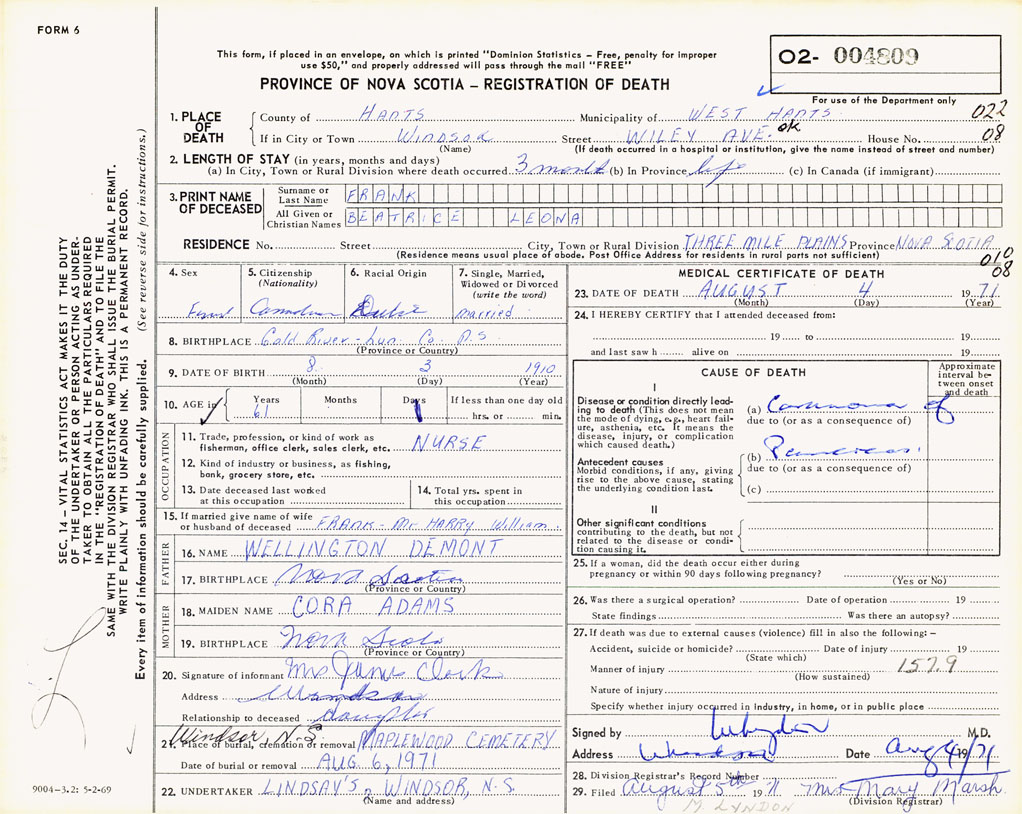 FORM 6
This form, if placed in an envelope, on which is printed "Dominion Statistics – Free, penalty for improper
use $50," and properly addressed will pass through the mail "FREE"
02- 004809
PROVINCE OF NOVA SCOTIA – REGISTRATION OF DEATH
For use of the Department only
022
08
1. PLACE OF DEATH
County of HANTS Municipality of WEST HANTS
If in City or Town WINDSOR Street WILEY AVE. OK House No.
(Name) (If death occurred in a hospital or institution, give the name instead of street and number)
2. LENGTH OF STAY (in years, months and days)
(a) In City, Town or Rural Division where death occurred 3 month (b) In Province life (c) In Canada (if immigrant)
3. PRINT NAME OF DECEASED
Surname or Last Name FRANK
All Given or Christian Names BEATRICE LEONA
RESIDENCE No. Street City, Town or Rural Division THREE MILE PLAINS Province NOVA SCOTIA
(Residence means usual place of abode. Post Office Address for residents in rural parts not sufficient)
010
08
4. Sex
5. Citizenship (Nationality) Canadian
6. Racial Origin
7. Single, Married, Widowed or Divorced (write the word) Married
8. BIRTHPLACE Gold River - Lun. Co. N.S
(Province or Country)
9. DATE OF BIRTH 8 3 1910
(Month) (Day) (Year)
10. AGE in Years Months Days If less than one day old
61 hrs. or min.
OCCUPATION
11. Trade, profession, or kind of work as
fisherman, office clerk, sales clerk, etc. NURSE
12. Kind of industry or business, as fishing,
bank, grocery store, etc.
13. Date deceased last worked
at this occupation
14. Total yrs. spent in
this occupation
15. If married give name of wife
or husband of deceased FRANK - Mr HARRY William
FATHER
16. NAME WELLINGTON DEMONT
17. BIRTHPLACE Nova Scotia
(Province or Country)
MOTHER
18. MAIDEN NAME CORA ADAMS
19. BIRTHPLACE Nova Scotia
(Province or Country)
20. Signature of informant Mrs Clark
Address Windsor
Relationship to deceased daughter
Windsor, N.S.
21. Place of burial, cremation or removal MAPLEWOOD CEMETERY
Date of burial or removal AUG. 6, 1971
22. UNDERTAKER LINDSAY'S, WINDSOR, N.S.
(Name and address)
MEDICAL CERTIFICATE OF DEATH
23. DATE OF DEATH AUGUST 4 1971
(Month) (Day) (Year)
24. I HEREBY CERTIFY that I attended deceased from:
19 to 19
and last saw h alive on 19
CAUSE OF DEATH
Approximate interval between onset and death
I
Disease or condition directly leading to death (This does not mean the mode of dying, e.g., heart failure, asthenia, etc. It means the disease, injury, or complication which caused death.)
(a) Carcinoma of
due to (or as a consequence of)
Antecedent causes
Morbid conditions, if any, giving rise to the above cause, stating the underlying condition last.
(b) Pancreas.
due to (or as a consequence of)
(c)
II
Other significant conditions
contributing to the death, but not related to the disease or condition causing it.
25. If a woman, did the death occur either during
pregnancy or within 90 days following pregnancy?
(Yes or No)
26. Was there a surgical operation? Date of operation 19
State findings Was there an autopsy?
27. If death was due to external causes (violence) fill in also the following: –
Accident, suicide or homicide? Date of injury 19
(State which)
Manner of injury 157.9
(How sustained)
Nature of injury
Specify whether injury occurred in industry, in home, or in public place
Signed by M.D.
Address Windsor Date Aug 4/71 19
28. Division Registrar's Record Number
29. Filed August 5th 1971 Mrs Mary Marsh
(Division Registrar)
M. LYNDON
SEC. 14 – VITAL STATISTICS ACT MAKES IT THE DUTY
OF THE UNDERTAKER OR PERSON ACTING AS UNDER-
TAKER TO OBTAIN ALL THE PARTICULARS REQUIRED
IN THE "REGISTRATION OF DEATH" AND TO FILE THE
SAME WITH THE DIVISION REGISTRAR WHO SHALL ISSUE THE BURIAL PERMIT.
WRITE PLAINLY WITH UNFADING INK. THIS IS A PERMANENT RECORD.
Every item of information should be carefully supplied. (See reverse side for instructions.)
9004-3.2: 5-2-69